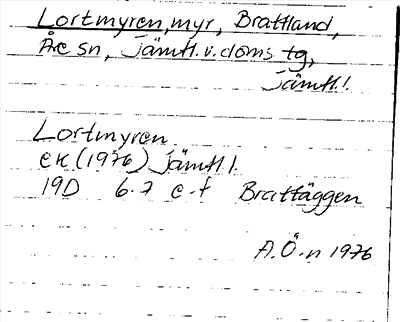 Lortmyren, myr, Brattland,
Åre sn, Jämtl. v. doms tg,
Jämtl.l.
Lortmyren
ek (1976) Jämtl l.
19D 6-7 e-f Brattäggen
A.Ö-n 1976